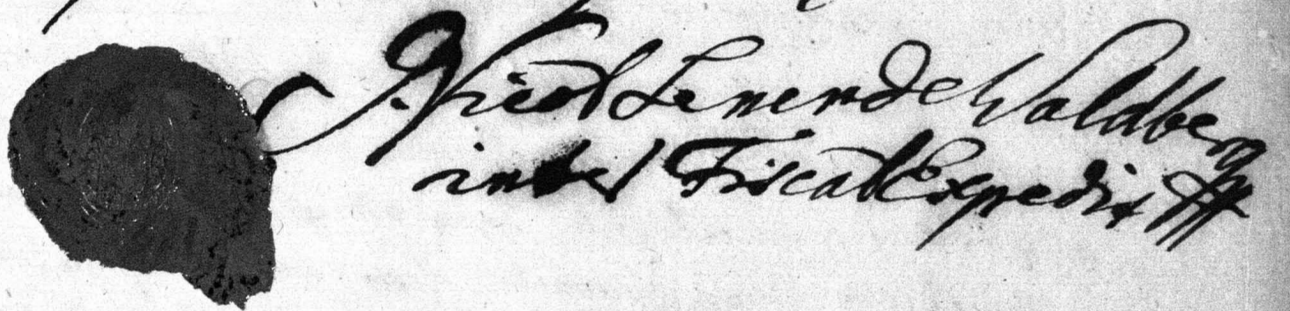 Nicol Lenen de Waldberg
inter Fiscal Expedit